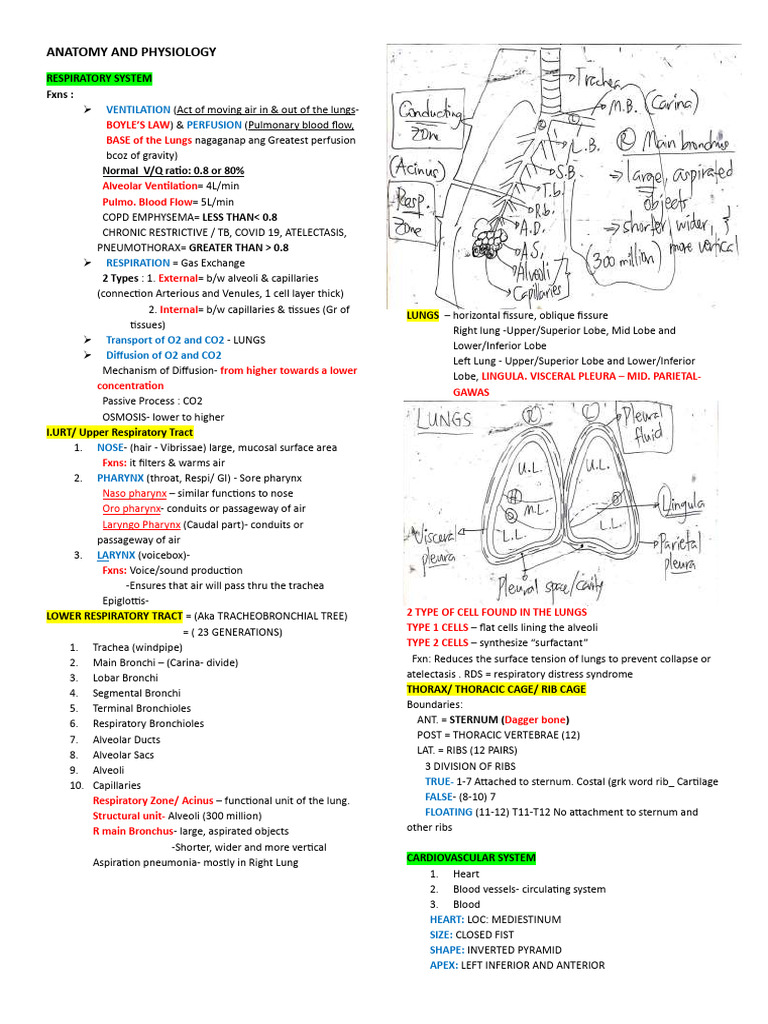 ANATOMY AND PHYSIOLOGY
RESPIRATORY SYSTEM
Fxns :
➢ VENTILATION (Act of moving air in & out of the lungs-
BOYLE'S LAW) & PERFUSION (Pulmonary blood flow,
BASE of the Lungs nagaganap ang Greatest perfusion
bcoz of gravity)
Normal V/Q ratio: 0.8 or 80%
Alveolar Ventilation= 4L/min
Pulmo. Blood Flow= 5L/min
COPD EMPHYSEMA= LESS THAN< 0.8
CHRONIC RESTRICTIVE / TB, COVID 19, ATELECTASIS,
PNEUMOTHORAX= GREATER THAN > 0.8
➢ RESPIRATION = Gas Exchange
2 Types : 1. External= b/w alveoli & capillaries
(connection Arterious and Venules, 1 cell layer thick)
2. Internal= b/w capillaries & tissues (Gr of
tissues)
➢ Transport of O2 and CO2 - LUNGS
➢ Diffusion of O2 and CO2
Mechanism of Diffusion- from higher towards a lower
concentration
Passive Process : CO2
OSMOSIS- lower to higher
I.URT/ Upper Respiratory Tract
1. NOSE- (hair - Vibrissae) large, mucosal surface area
Fxns: it filters & warms air
2. PHARYNX (throat, Respi/ GI) - Sore pharynx
Naso pharynx – similar functions to nose
Oro pharynx- conduits or passageway of air
Laryngo Pharynx (Caudal part)- conduits or
passageway of air
3. LARYNX (voicebox)-
Fxns: Voice/sound production
-Ensures that air will pass thru the trachea
Epiglottis-
LOWER RESPIRATORY TRACT = (Aka TRACHEOBRONCHIAL TREE)
= ( 23 GENERATIONS)
1. Trachea (windpipe)
2. Main Bronchi – (Carina- divide)
3. Lobar Bronchi
4. Segmental Bronchi
5. Terminal Bronchioles
6. Respiratory Bronchioles
7. Alveolar Ducts
8. Alveolar Sacs
9. Alveoli
10. Capillaries
Respiratory Zone/ Acinus – functional unit of the lung.
Structural unit- Alveoli (300 million)
R main Bronchus- large, aspirated objects
-Shorter, wider and more vertical
Aspiration pneumonia- mostly in Right Lung
Trachea
M.B. (Carina)
Conducting
Zone
R L
L.B.
(R) Main bronchus
(Acinus)
S.B
→ large, aspirated
objects
T.b.
Resp.
Zone
R.b.
→ shorter, wider, &
more vertical
A.D.
A.S,
(300 million)
Alveoli
Capillaries
LUNGS – horizontal fissure, oblique fissure
Right lung -Upper/Superior Lobe, Mid Lobe and
Lower/Inferior Lobe
Left Lung - Upper/Superior Lobe and Lower/Inferior
Lobe, LINGULA. VISCERAL PLEURA – MID. PARIETAL-
GAWAS
LUNGS
R L
Pleural
fluid
U.L. U.L.
H
M.L.
O O
Lingula
L.L. L.L.
Visceral
pleura
Parietal
pleura
Pleural space/cavity
2 TYPE OF CELL FOUND IN THE LUNGS
TYPE 1 CELLS – flat cells lining the alveoli
TYPE 2 CELLS – synthesize “surfactant”
Fxn: Reduces the surface tension of lungs to prevent collapse or
atelectasis . RDS = respiratory distress syndrome
THORAX/ THORACIC CAGE/ RIB CAGE
Boundaries:
ANT. = STERNUM (Dagger bone)
POST = THORACIC VERTEBRAE (12)
LAT. = RIBS (12 PAIRS)
3 DIVISION OF RIBS
TRUE- 1-7 Attached to sternum. Costal (grk word rib_ Cartilage
FALSE- (8-10) 7
FLOATING (11-12) T11-T12 No attachment to sternum and
other ribs
CARDIOVASCULAR SYSTEM
1. Heart
2. Blood vessels- circulating system
3. Blood
HEART: LOC: MEDIESTINUM
SIZE: CLOSED FIST
SHAPE: INVERTED PYRAMID
APEX: LEFT INFERIOR AND ANTERIOR